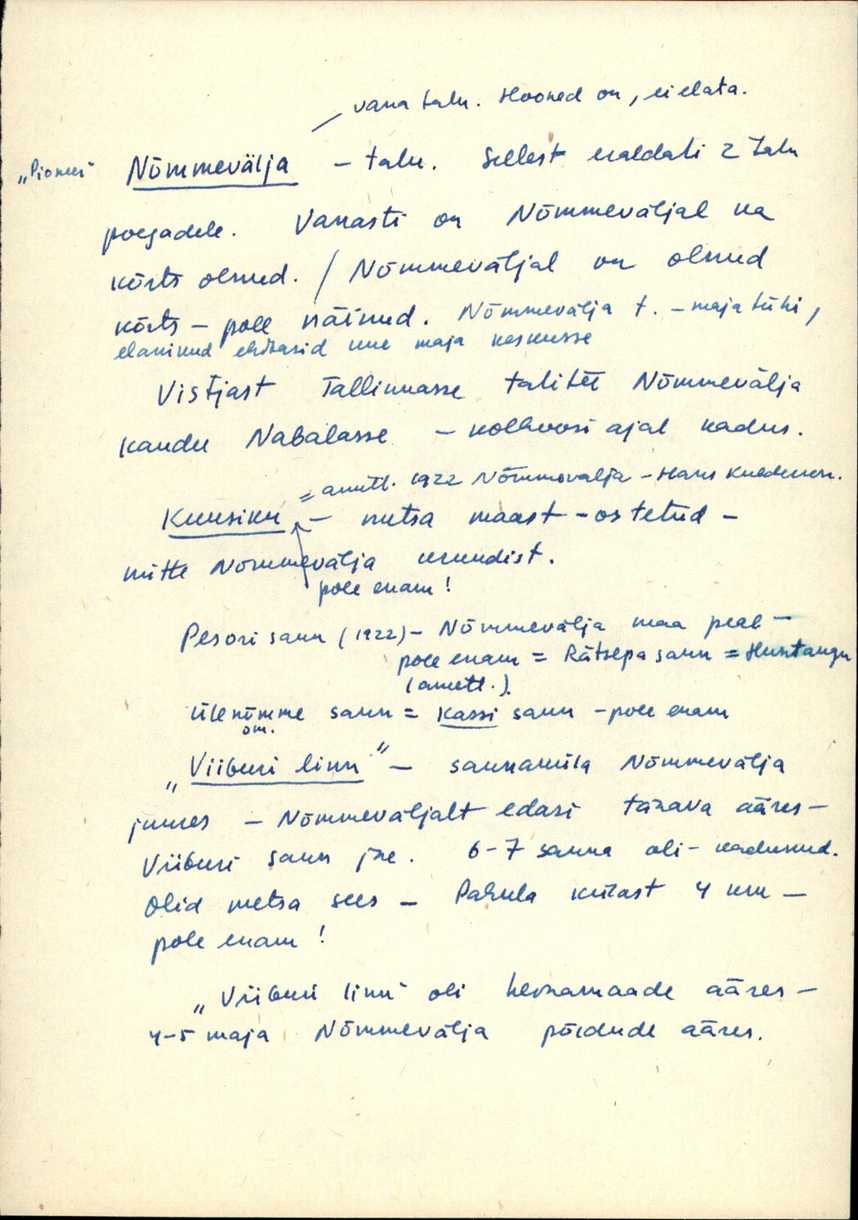 vana talu. Hooned on, ei elata.
„Pioneer" Nõmmevälja – talu. Sellest eraldati 2 talu
poegadele. Vanasti on Nõmmeväljal ka
kõrts olnud. / Nõmmeväljal on olnud
kõrts – pole näinud. Nõmmevälja t. – maja tühi,
elanikud ehitasid uue maja keskusse
Vistjast Tallinnasse talitee Nõmmevälja
kaudu Nabalasse – kolhoosi ajal kadus.
= ametl. 1922 Nõmmevälja – Hans
Kuusiku – metsa maast – ostetud –
mitte Nõmmevälja krundist.
pole enam!
Pesori saun (1922) – Nõmmevälja maa peal –
pole enam = Rätsepa saun =
(ametl.).
Ülenõmme saun = Kassi saun – pole enam
om.
„Viiburi linn" – saunaküla Nõmmevälja
juures – Nõmmeväljalt edasi tarava ääres –
Viiburi saun jne. 6–7 sauna oli – kadunud.
Olid metsa sees – Pahula külast 4 km –
pole enam!
„Viiburi linn" oli heinamaade ääres –
4–5 maja Nõmmevälja põldude ääres.